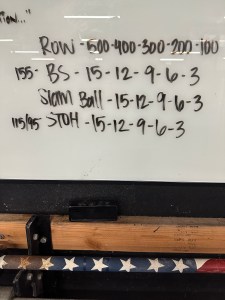 Row - 500-400-300-200-100
155- BS - 15-12-9-6-3
Slam Ball -15-12-9-6-3
115/95 STOH -15-12-9-6-3